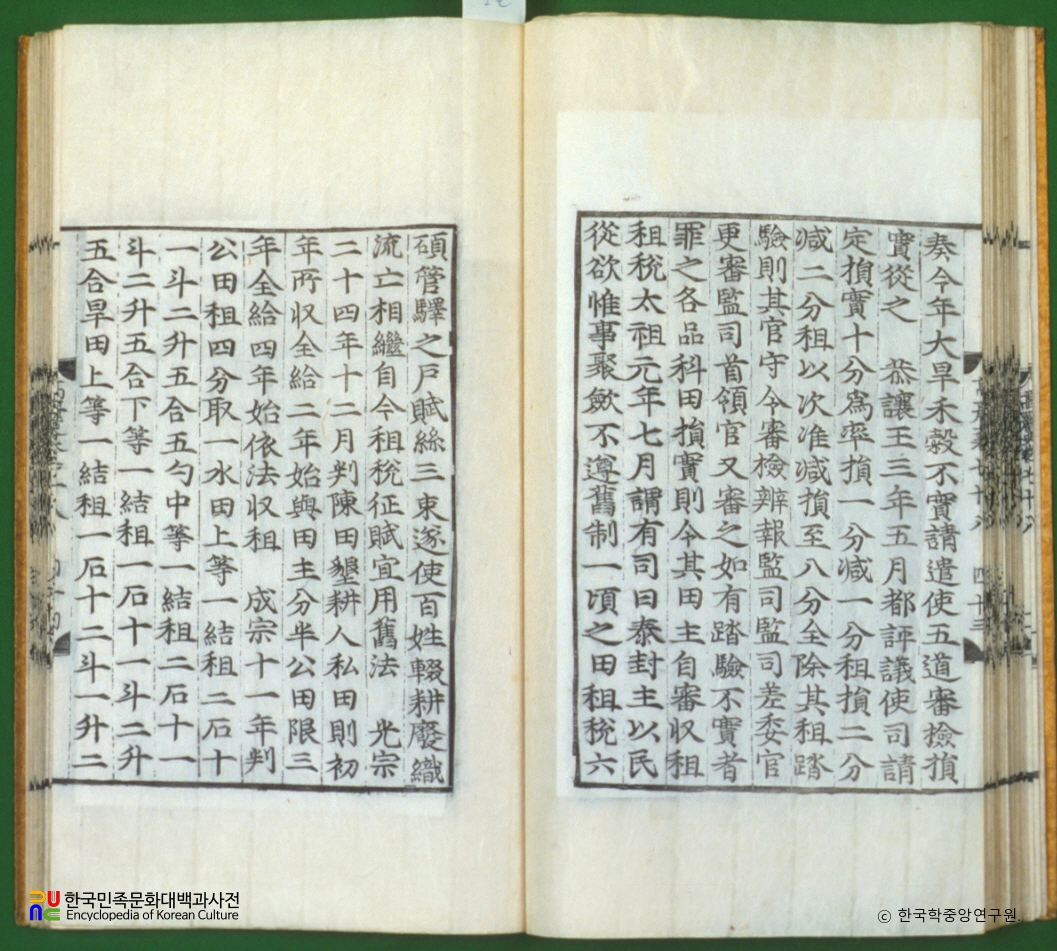 奏今年大旱禾穀不實請遣使五道審撿損
實從之 恭讓王三年五月都評議使司請
定損實十分爲率損一分减一分租損二分
减二分租以次准减損至八分全除其租踏
驗則其官守令審檢辨報監司監司差委官
更審監司首領官又審之如有踏驗不實者
罪之各品科田損實則令其田主自審収租
租稅太祖元年七月謂有司曰泰封主以民
從欲惟事聚歛不遵舊制一頃之田租稅六
碩管驛之戶賦絲三束遂使百姓輟耕廢織
流亡相繼自今租稅征賦宜用舊法 光宗
二十四年十二月判陳田墾耕人私田則初
年所収全給二年始與田主分半公田限三
年全給四年始依法収租 成宗十一年判
公田租四分取一水田上等一結租二石十
一斗二升五合五勺中等一結租二石十一
斗二升五合下等一結租一石十一斗二升
五合旱田上等一結租一石十二斗一升二
한국민족문화대백과사전
Encyclopedia of Korean Culture
© 한국학중앙연구원